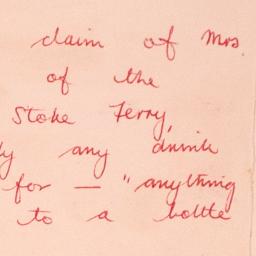 claim of Mrs.
of the
Stoke Ferry,
any drink
for — "anything
to a bottle